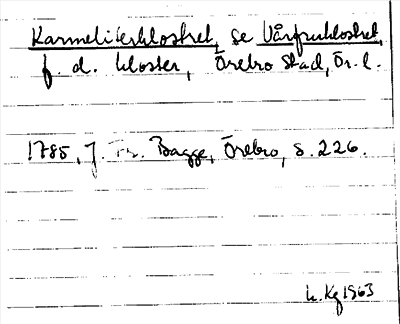 Karmeliterklostret, se Vårfruklostret,
f. d. kloster, Örebro stad, Ör. l.
1785, J. Fr. Bagge, Örebro, s. 226.
L. Kg 1963